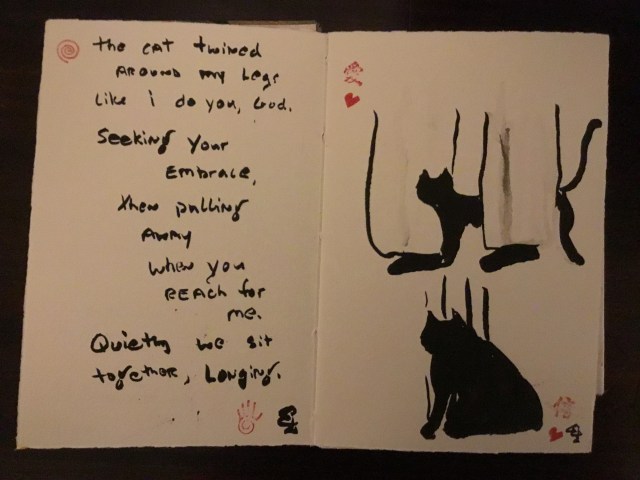 the cat twined
AROUND my Legs
Like i do you, God.
Seeking Your
EMBRACE,
then pulling
AWAY
when you
REACH for
me.
Quietly we sit
together, Longing.
愛
信